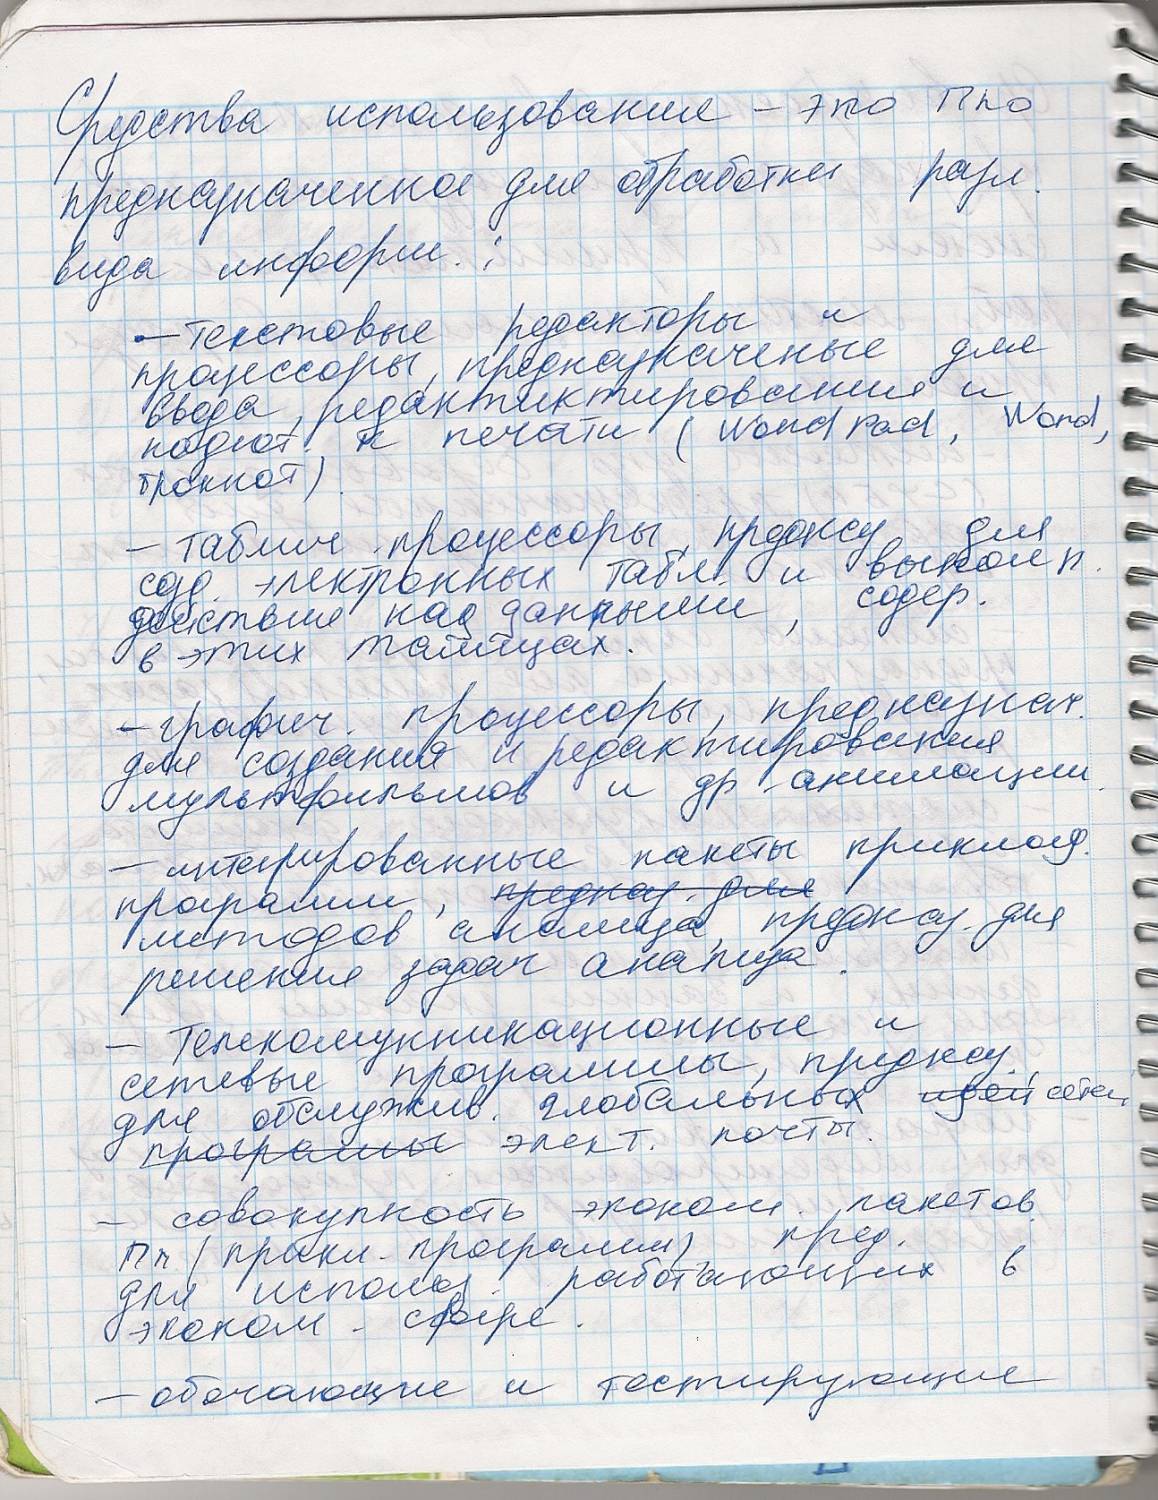 Средства использования – это ППО
предназначенное для обработки разл.
вида информ. :
– текстовые редакторы и
процессоры, предназначеные для
ввода, редактиктирования и
подгот. к печати (WordPad, Word,
блокнот).
– таблич. процессоры, предназ. для
созд. электронных табл. и выполн.
действия над данными, содер.
в этих таблицах.
– графич. процессоры, предназнач.
для создания и редактирования
мультфильмов и др. анимации.
– интегрированные пакеты приклад.
программ, предназ. для
методов анализа, предназ. для
решения задач анализа.
– Телекомунникационные и
сетевые программы, предназ.
для обслужив. глобальных сетей
программы элект. почты.
– совокупность эконом. пакетов
ПП (прикл. программ) пред.
для использ. работающих в
эконом. сфере.
– обочающие и тестирующие